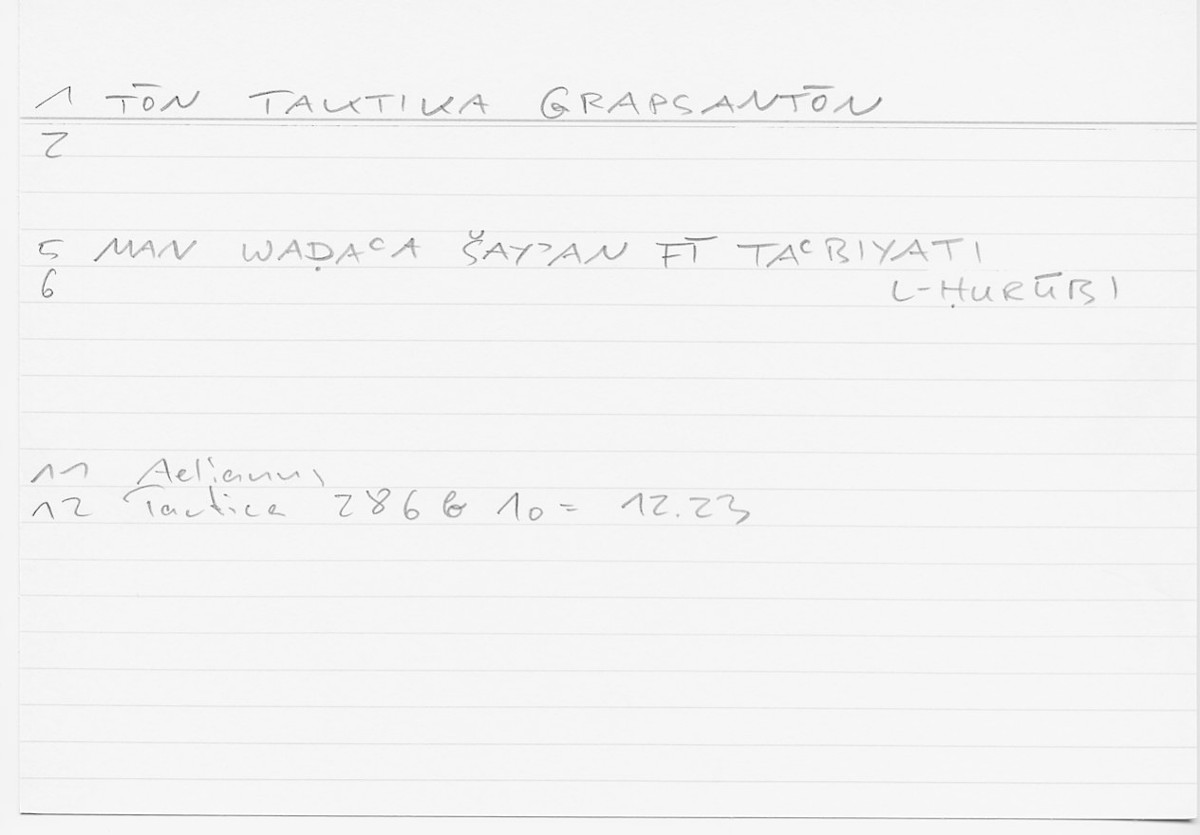 1 TŌN TAKTIKA GRAPSANTŌN
2
5 MAN WAḌAʿA ŠAYʾAN FĪ TAʿBIYATI
6 L-ḤURŪBI
11 Aelianus
12 Tactica 286 b 10 = 12.23